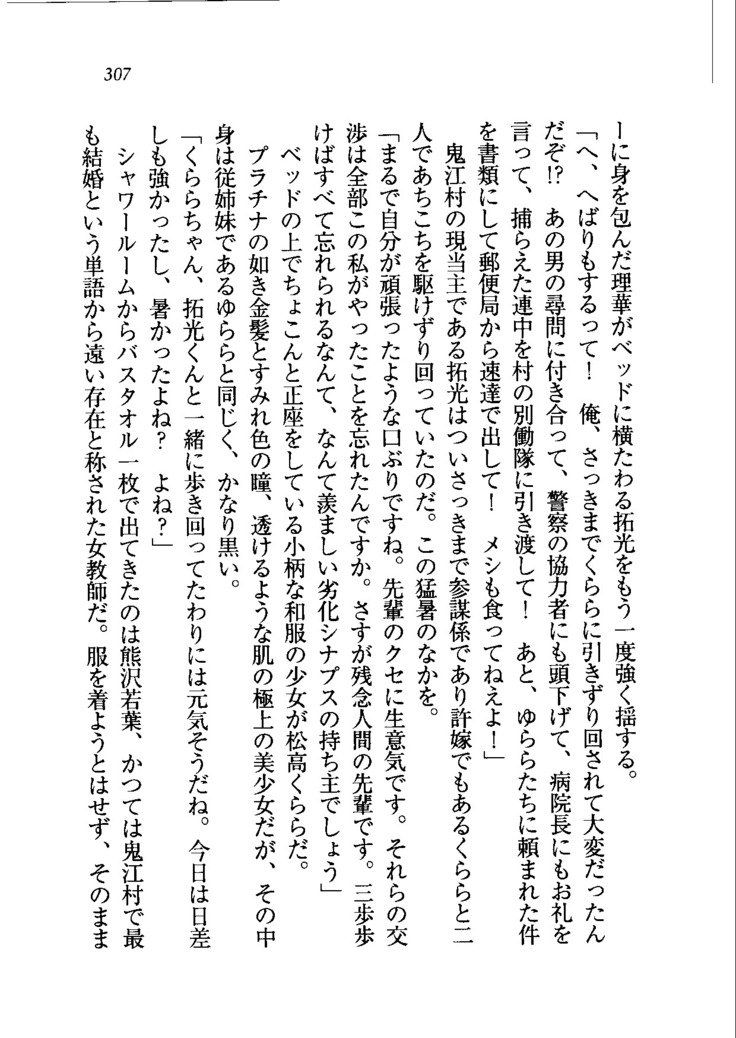 307
ーに身を包んだ理華がベッドに横たわる拓光をもう一度強く揺する。
「へ、へばりもするって！　俺、さっきまでくららに引きずり回されて大変だったん
だぞ!?　あの男の尋問に付き合って、警察の協力者にも頭下げて、病院長にもお礼を
言って、捕らえた連中を村の別働隊に引き渡して！　あと、ゆららたちに頼まれた件
を書類にして郵便局から速達で出して！　メシも食ってねえよ！」
　鬼江村の現当主である拓光はついさっきまで参謀係であり許嫁でもあるくららと二
人であちこちを駆けずり回っていたのだ。この猛暑のなかを。
「まるで自分が頑張ったような口ぶりですね。先輩のクセに生意気です。それらの交
渉は全部この私がやったことを忘れたんですか。さすが残念人間の先輩です。三歩歩
けばすべて忘れられるなんて、なんて羨ましい劣化シナプスの持ち主でしょう」
　ベッドの上でちょこんと正座をしている小柄な和服の少女が松高くららだ。
　プラチナの如き金髪とすみれ色の瞳、透けるような肌の極上の美少女だが、その中
身は従姉妹であるゆららと同じく、かなり黒い。
「くららちゃん、拓光くんと一緒に歩き回ってたわりには元気そうだね。今日は日差
しも強かったし、暑かったよね？　よね？」
　シャワールームからバスタオル一枚で出てきたのは熊沢若葉、かつては鬼江村で最
も結婚という単語から遠い存在と称された女教師だ。服を着ようとはせず、そのまま